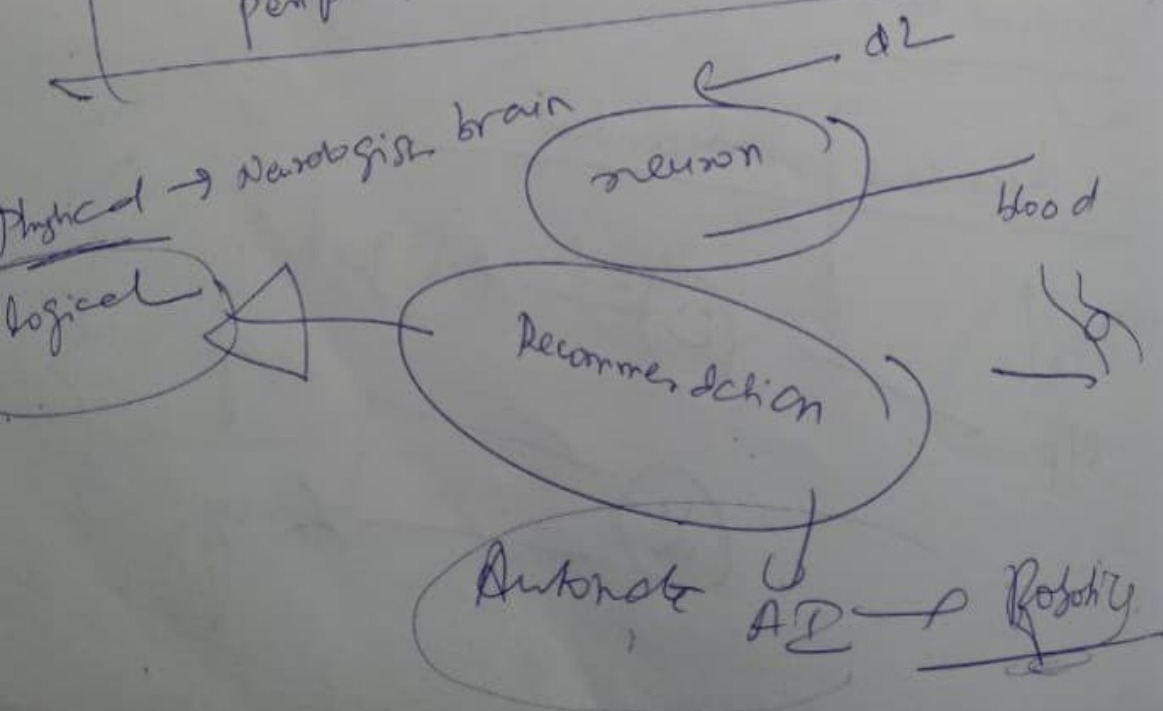 dL
Physical → Neurologist brain
neuron
blood
logical
Recommendation
Automate AI → Robotics